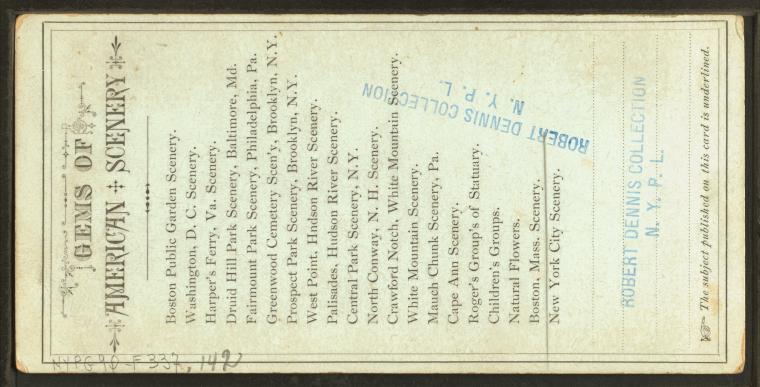 GEMS OF
AMERICAN SCENERY
Boston Public Garden Scenery.
Washington, D. C. Scenery.
Harper's Ferry, Va. Scenery.
Druid Hill Park Scenery, Baltimore, Md.
Fairmount Park Scenery, Philadelphia, Pa.
Greenwood Cemetery Scen'y, Brooklyn, N.Y.
Prospect Park Scenery, Brooklyn, N.Y.
West Point, Hndson River Scenery.
Palisades, Hudson River Scenery.
Central Park Scenery, N.Y.
North Conway, N. H. Scenery.
Crawford Notch, White Mountain Scenery.
White Mountain Scenery.
Mauch Chunk Scenery, Pa.
Cape Ann Scenery.
Roger's Group's of Statuary.
Children's Groups.
Natural Flowers.
Boston, Mass. Scenery.
New York City Scenery.
ROBERT DENNIS COLLECTION
N. Y. P. L.
ROBERT DENNIS COLLECTION
N. Y. P. L.
The subject published on this card is underlined.
NYPG90-F337, 142